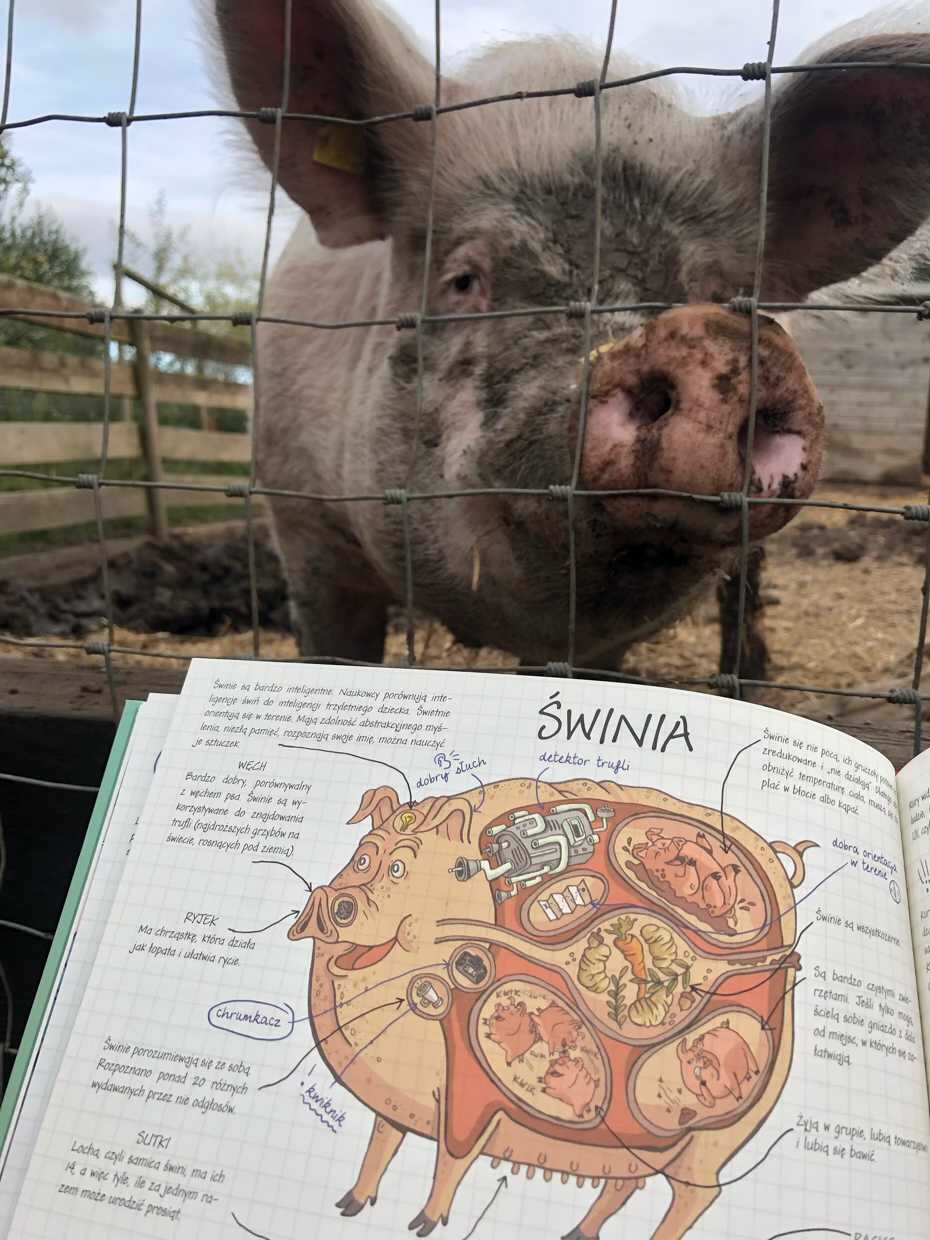 Świnie są bardzo inteligentne. Naukowcy porównują inte-
ligencję świń do inteligencji trzyletniego dziecka. Świetnie
orientują się w terenie. Mają zdolność abstrakcyjnego myś-
lenia, niezłą pamięć, rozpoznają swoje imię, można nauczyć
je sztuczek.
ŚWINIA
WĘCH
Bardzo dobry, porównywalny
z węchem psa. Świnie są wy-
korzystywane do znajdowania
trufli (najdroższych grzybów na
świecie, rosnących pod ziemią).
dobry słuch
detektor trufli
Świnie się nie pocą, ich gruczoły
zredukowane i „nie działają".
obniżyć temperaturę ciała, muszą się
plać w błocie albo kąpać.
dobra orientacja
w terenie
RYJEK
Ma chrząstkę, która działa
jak łopata i ułatwia rycie.
Świnie są wszystkożerne.
chrumkacz
Są bardzo czystymi zwie-
rzętami. Jeśli tylko mogą,
ścielą sobie gniazdo z dala
od miejsc, w których się za-
łatwiają.
Świnie porozumiewają się ze sobą.
Rozpoznano ponad 20 różnych
wydawanych przez nie odgłosów.
! kwiknik
KWIK
KWIK
Żyją w grupie, lubią towarzystwo
i lubią się bawić.
SUTKI
Locha, czyli samica świni, ma ich
14, a więc tyle, ile za jednym ra-
zem może urodzić prosiąt.